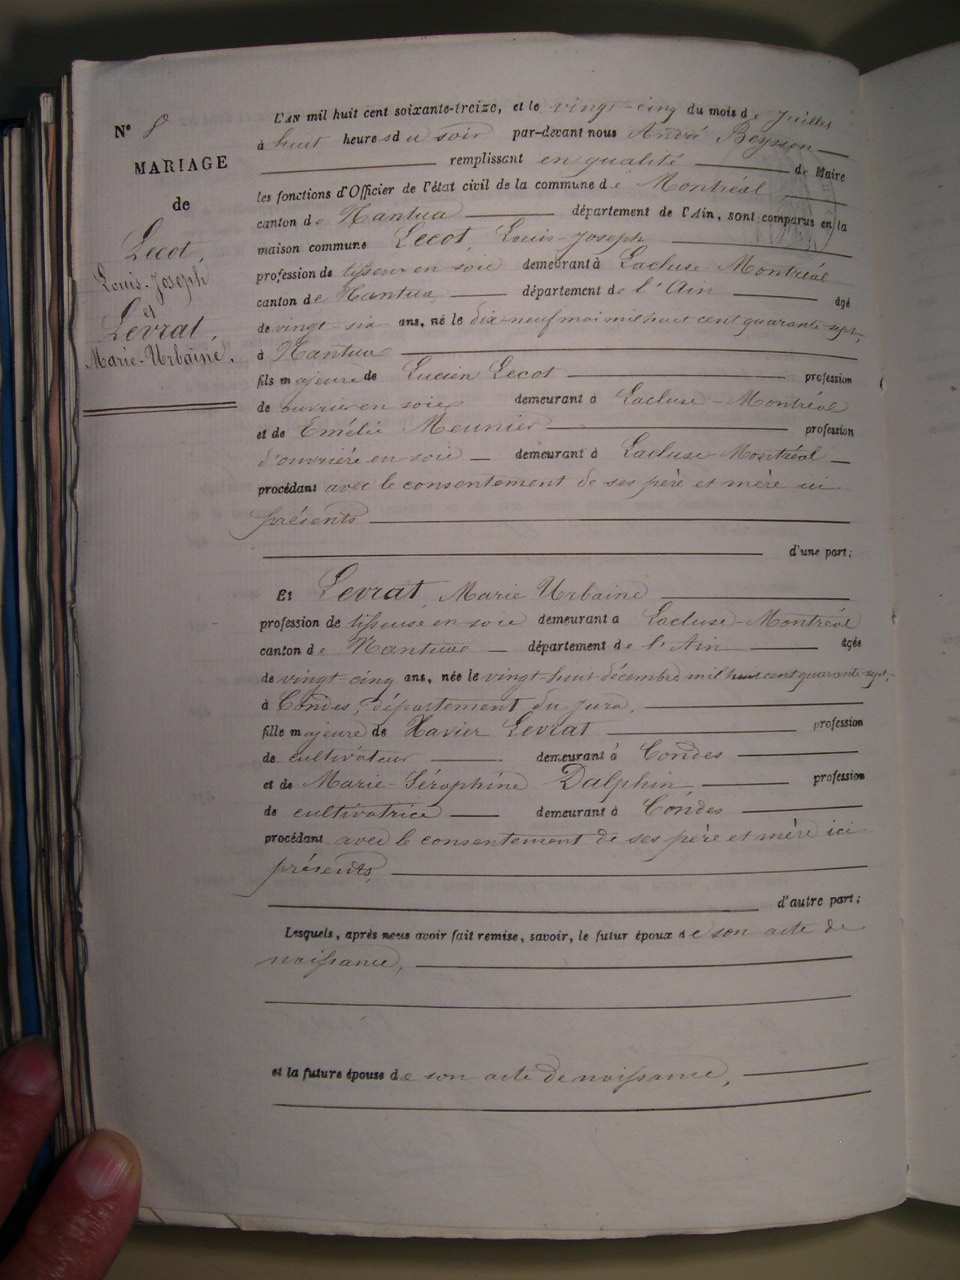 N° 8
MARIAGE
de
Lecot,
Louis-Joseph
et
Levrat,
Marie-Urbaine.
L'AN mil huit cent soixante-treize, et le vingt-cinq du mois de juillet
à huit heures du soir par-devant nous André Beysson
remplissant en qualité de Maire
les fonctions d'Officier de l'état civil de la commune de Montréal
canton de Nantua département de l'Ain, sont comparus en la
maison commune Lecot, Louis-Joseph
profession de tisseur en soie demeurant à Lacluse Montréal
canton de Nantua, département de l'Ain âgé
de vingt-six ans, né le dix-neuf mai mil huit cent quarante-sept,
à Nantua
fils majeur de Lucien Lecot profession
de ouvrier en soie demeurant à Lacluse-Montréal
et de Emélie Meunier profession
d'ouvrière en soie demeurant à Lacluse-Montréal
procédant avec le consentement de ses père et mère ici
présents
d'une part;
Et Levrat, Marie Urbaine
profession de tisseuse en soie demeurant à Lacluse-Montréal
canton de Nantua département de l'Ain âgée
de vingt-cinq ans, née le vingt-huit décembre mil huit cent quarante-sept,
à Condes, département du Jura,
fille majeure de Xavier Levrat profession
de cultivateur demeurant à Condes
et de Marie-Séraphine Dalphin profession
de cultivatrice demeurant à Condes
procédant avec le consentement de ses père et mère ici
présents,
d'autre part;
Lesquels, après nous avoir fait remise, savoir, le futur époux de son acte de
naissance,
et la future épouse de son acte de naissance,